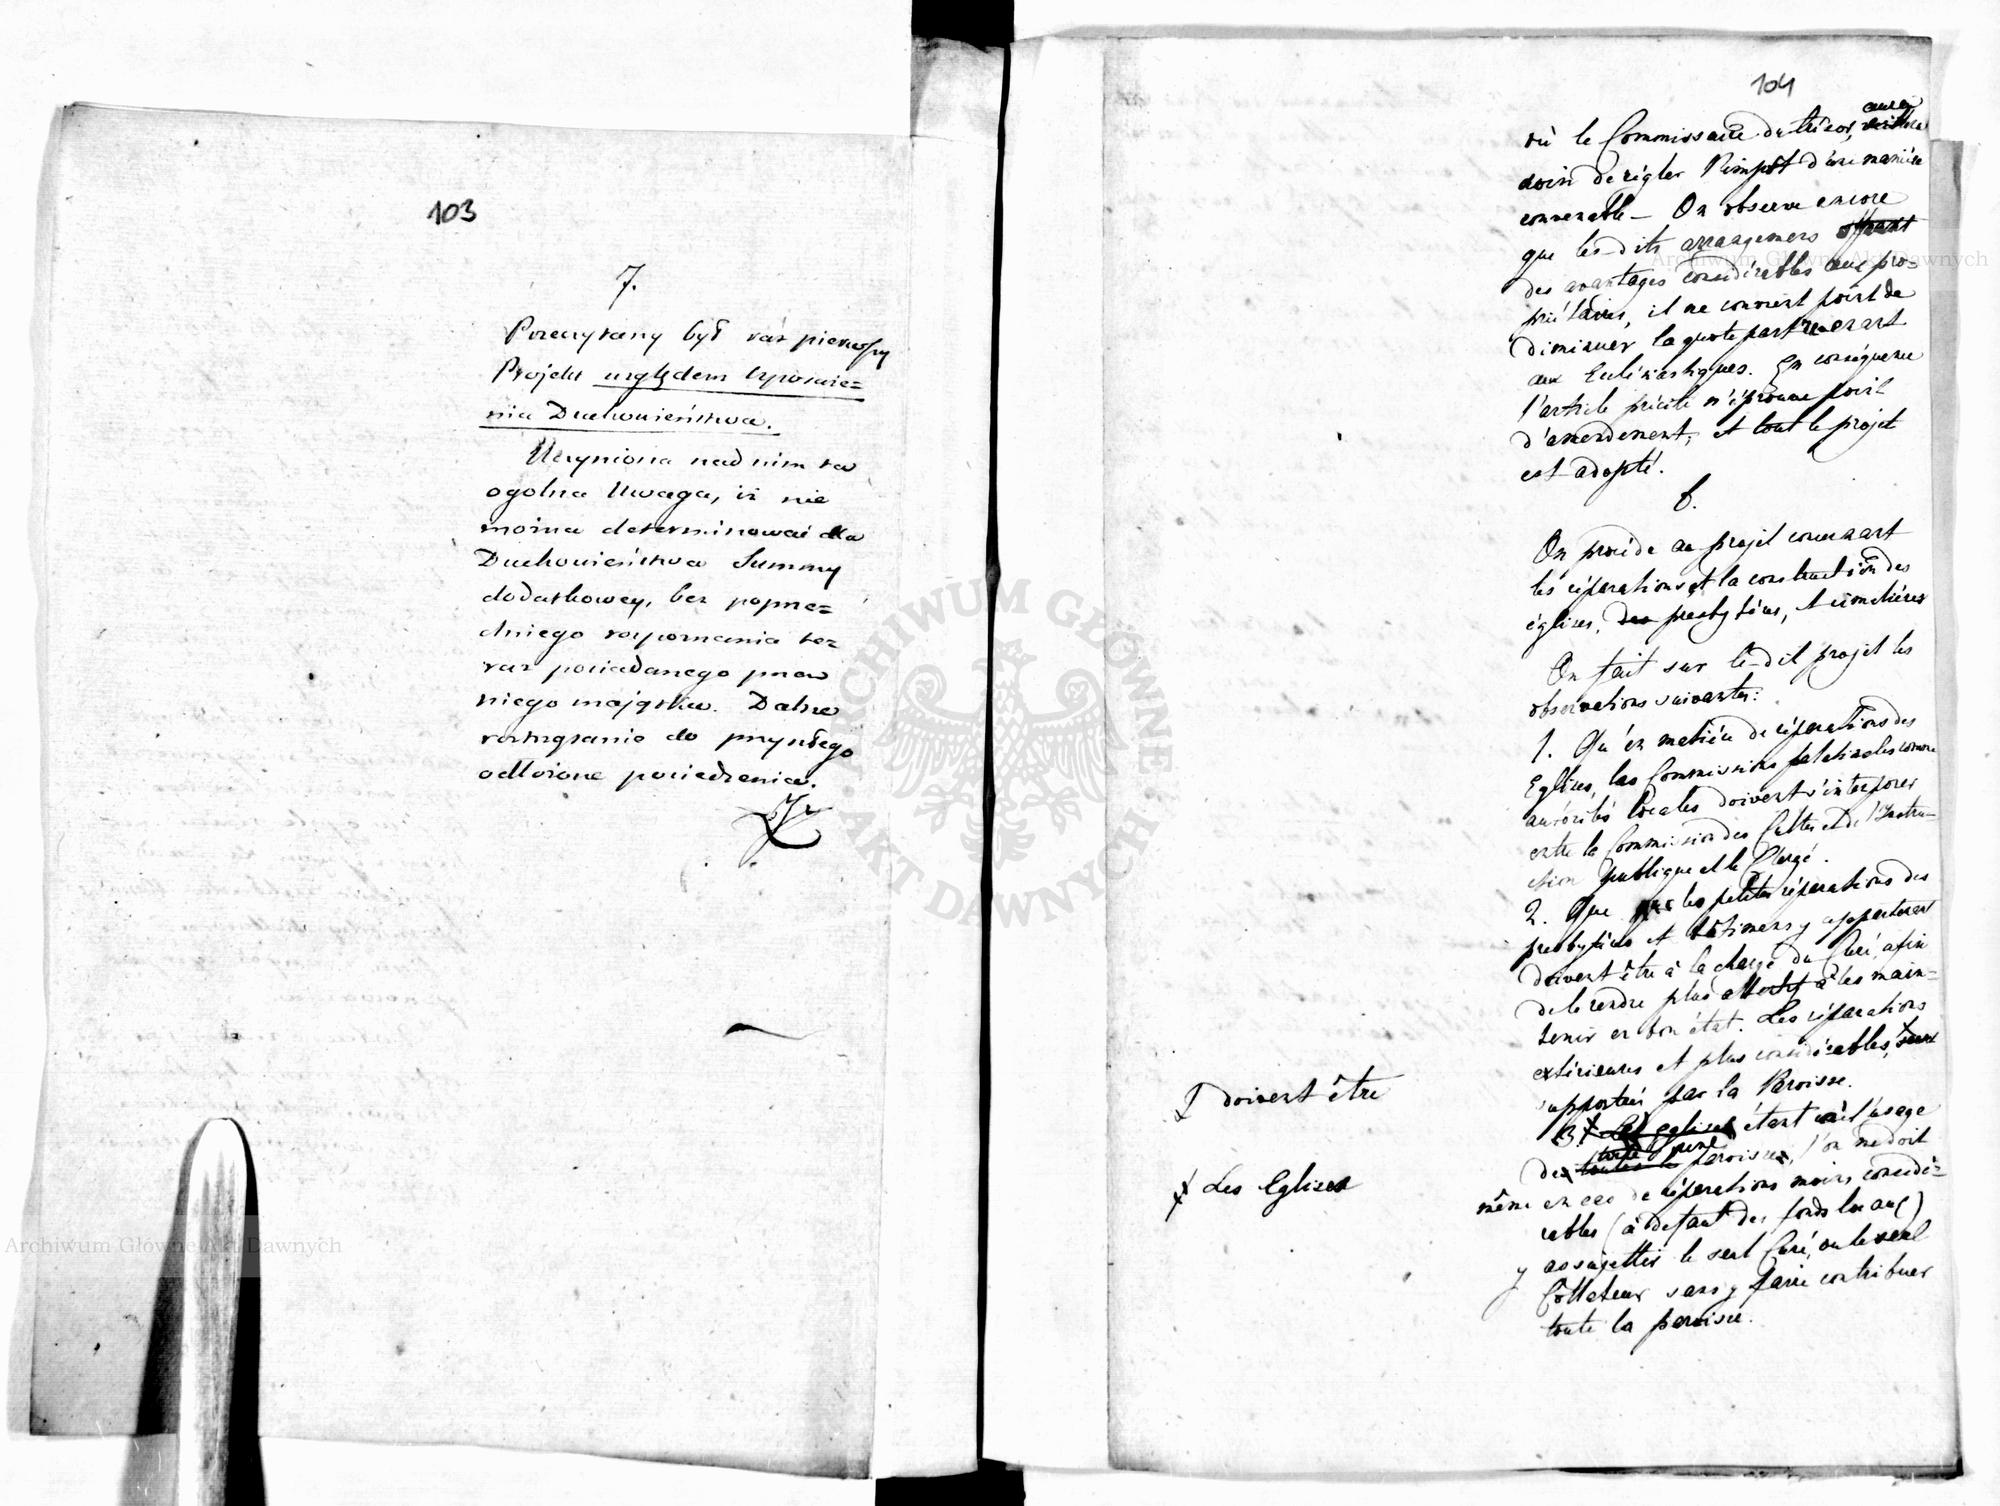 103
7.
Przeczytany był raz pierwszy
Projekt względem Uposaże=
nia Duchowieństwa.
Uczyniona nad nim ta
ogolna Uwaga, iż nie
można determinować dla
Duchowieństwa Summy
dodatkowey, bez poprze=
dniego rozpoznania te=
raz posiadanego przez
niego majątku. Dalsze
roztrząsanie do przyszłego
odłożone posiedzenia.
104
où le Commissaire du trésor, aura
soin de régler l'impôt d'une manière
convenable – On observe encore
que les-dits arrangemens offrant
des avantages considérables aux pro=
priétaires, il ne convient point de
diminuer la quote part revenant
aux Ecclésiastiques. En conséquence
l'article précité n'éprouve point
d'amendement, et tout le projet
est adopté.
8.
On procède au projet concernant
les réparations et la construction des
églises, des presbytères, et cimetières
On fait sur le-dit projet les
observations suivantes:
1. Qu'en matière de réparations des
Eglises, les Commissions palatinales comme
autorités locales doivent s'interposer
entre la Commission des Cultes et de l'Instru=
ction publique et le Clergé.
2. Que les petites réparations des
presbytères et bâtimens y appartenant
doivent être à la charge du Curé, afin
de le rendre plus attentif à les main=
tenir en bon état. Les réparations
extérieures et plus considérables,
supportées par la Paroisse.
ɫ doivent être
3. Les eglises étant à l'usage
de toute une paroisse, l'on ne doit
ɫ Les Eglises
même en cas de réparations moins considé=
rables (à défaut des fonds locaux)
y assujettir le seul Curé, ou le seul
Collateur sans y faire contribuer
toute la paroisse.
Archiwum Główne Akt Dawnych
Archiwum Główne Akt Dawnych
ARCHIWUM GŁÓWNE AKT DAWNYCH